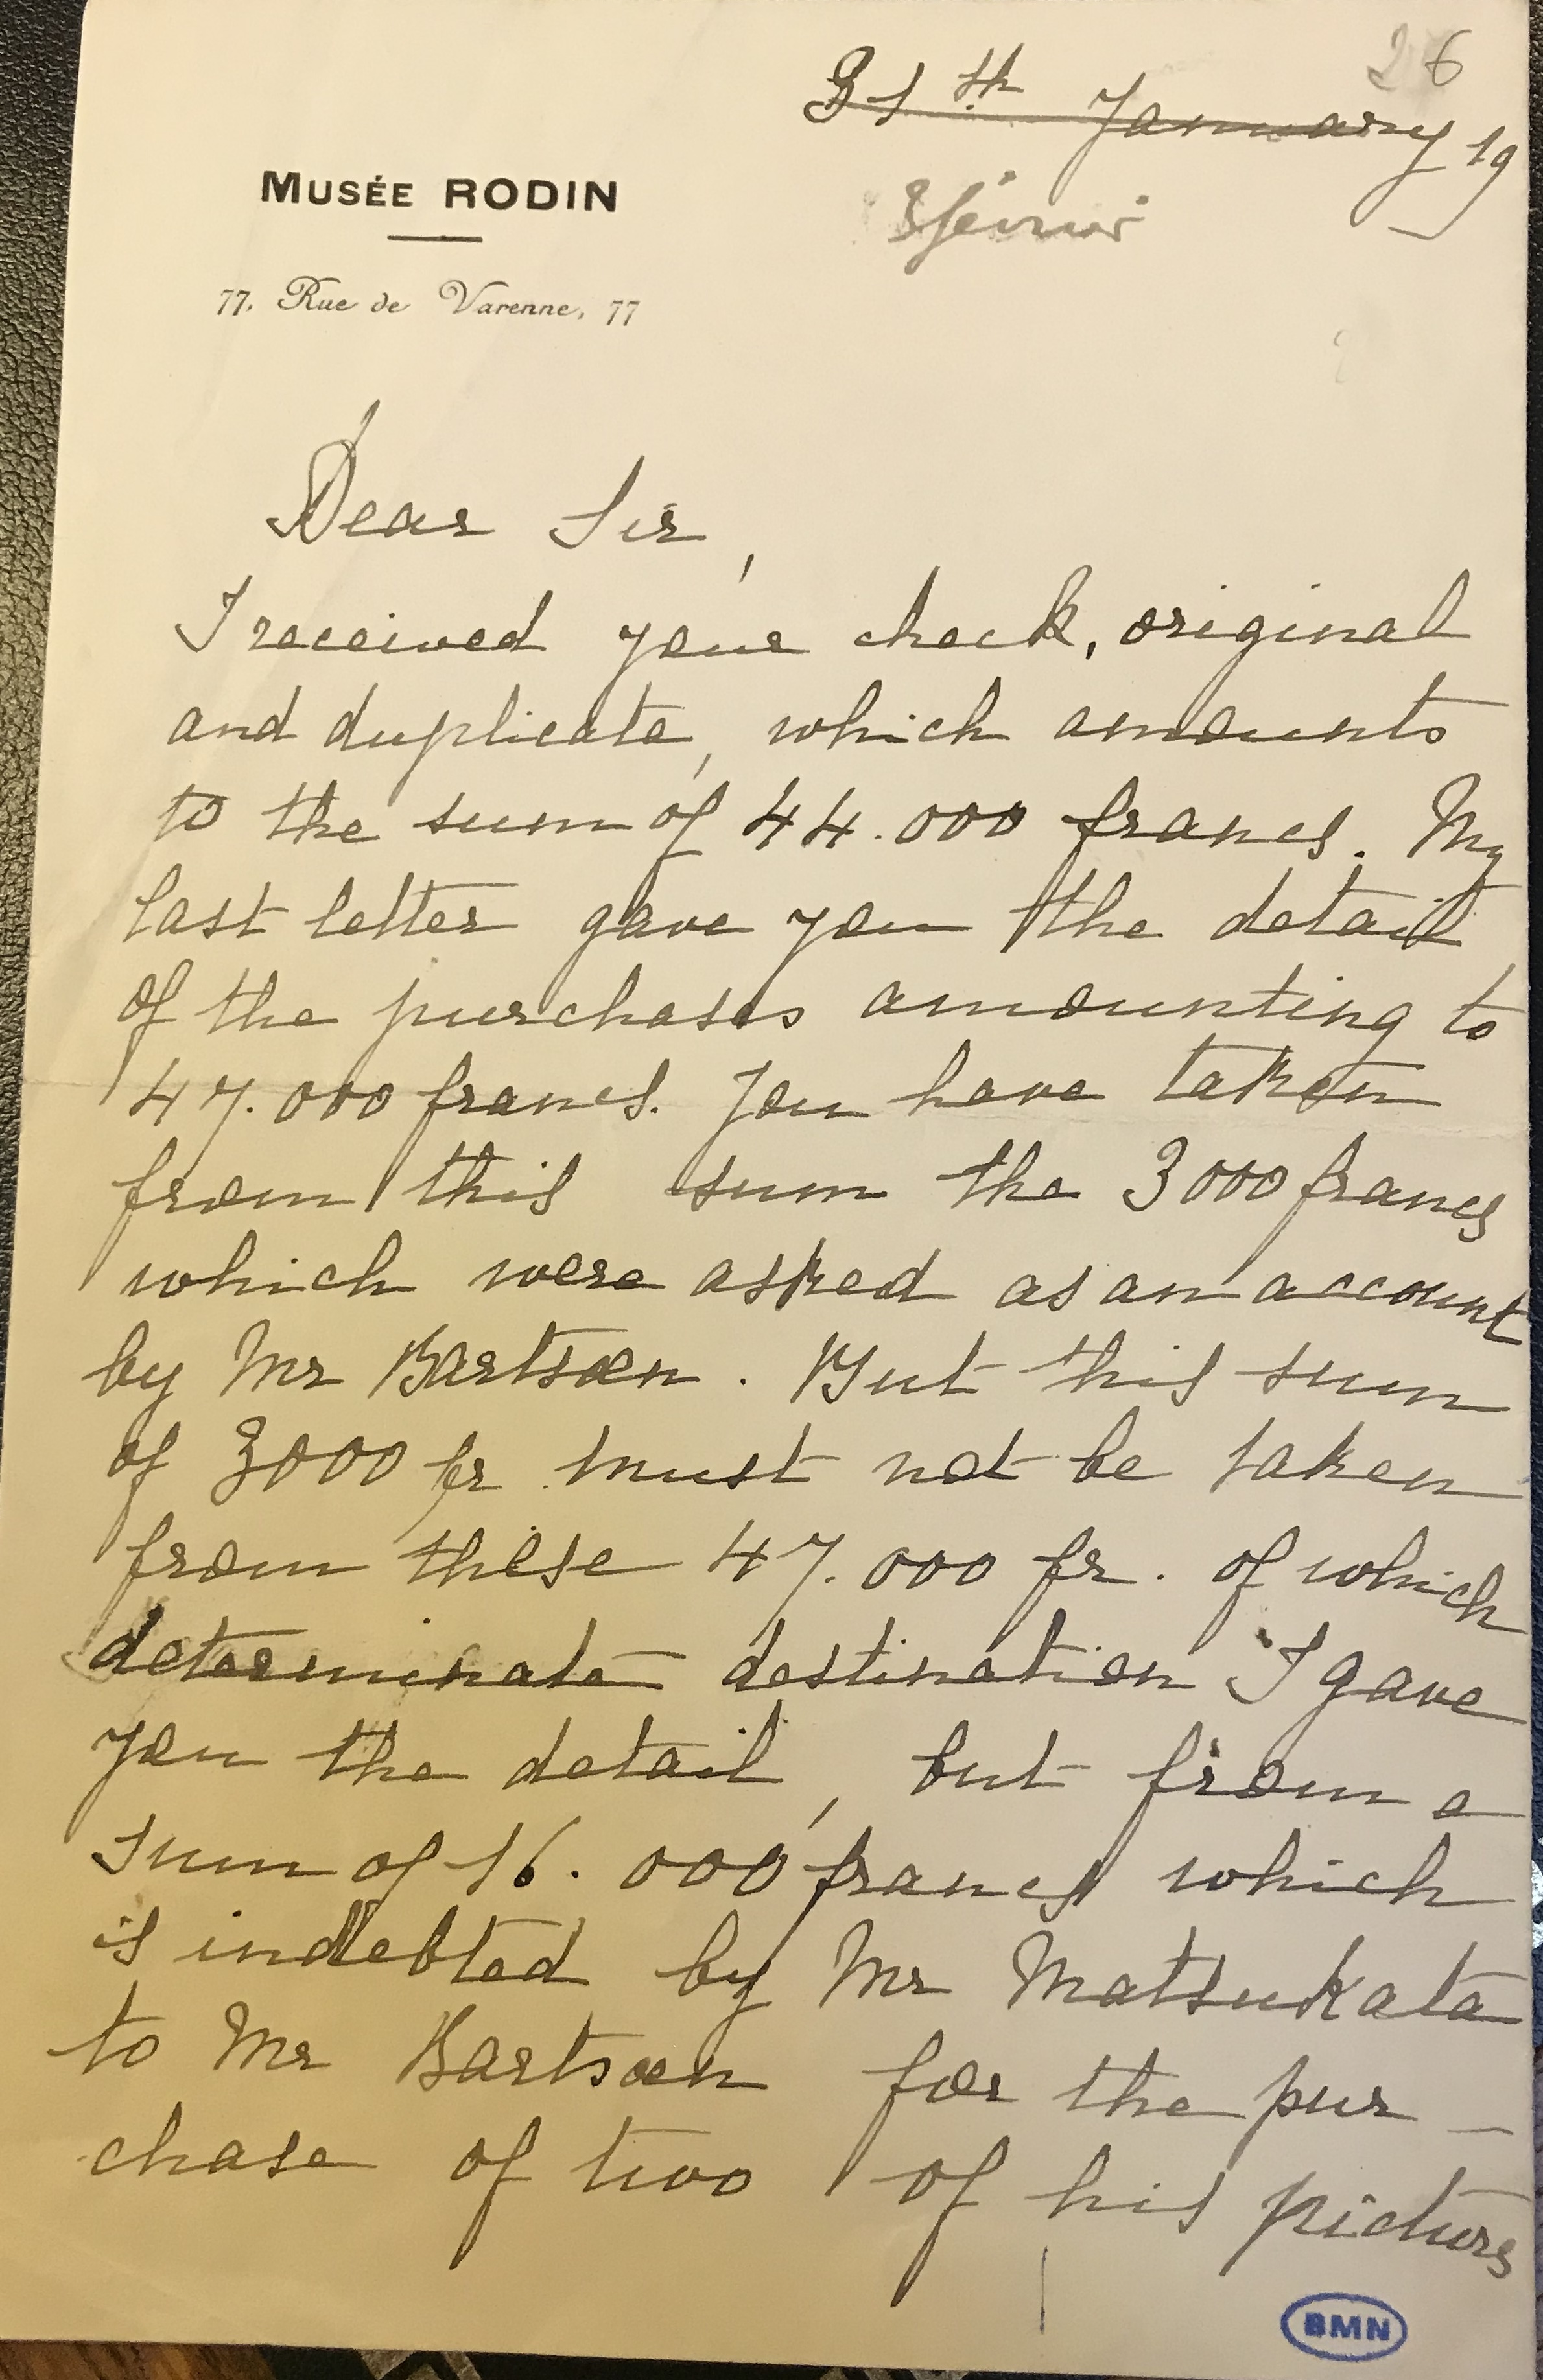 26
31th January 19
3 février
MUSÉE RODIN
77, Rue de Varenne, 77
Dear Sir,
I received your check, original
and duplicate, which amounts
to the sum of 44.000 francs. My
last letter gave you the detail
of the purchases amounting to
47.000 francs. You have taken
from this sum the 3000 francs
which were asked as an account
by Mr Bartsoen. But this sum
of 3000 fr must not be taken
from these 47.000 fr. of which
determinate destination I gave
you the detail, but from a
sum of 16.000 francs which
is indebted by Mr Matsukata
to Mr Bartsoen for the pur-
chase of two of his picturs
BMN